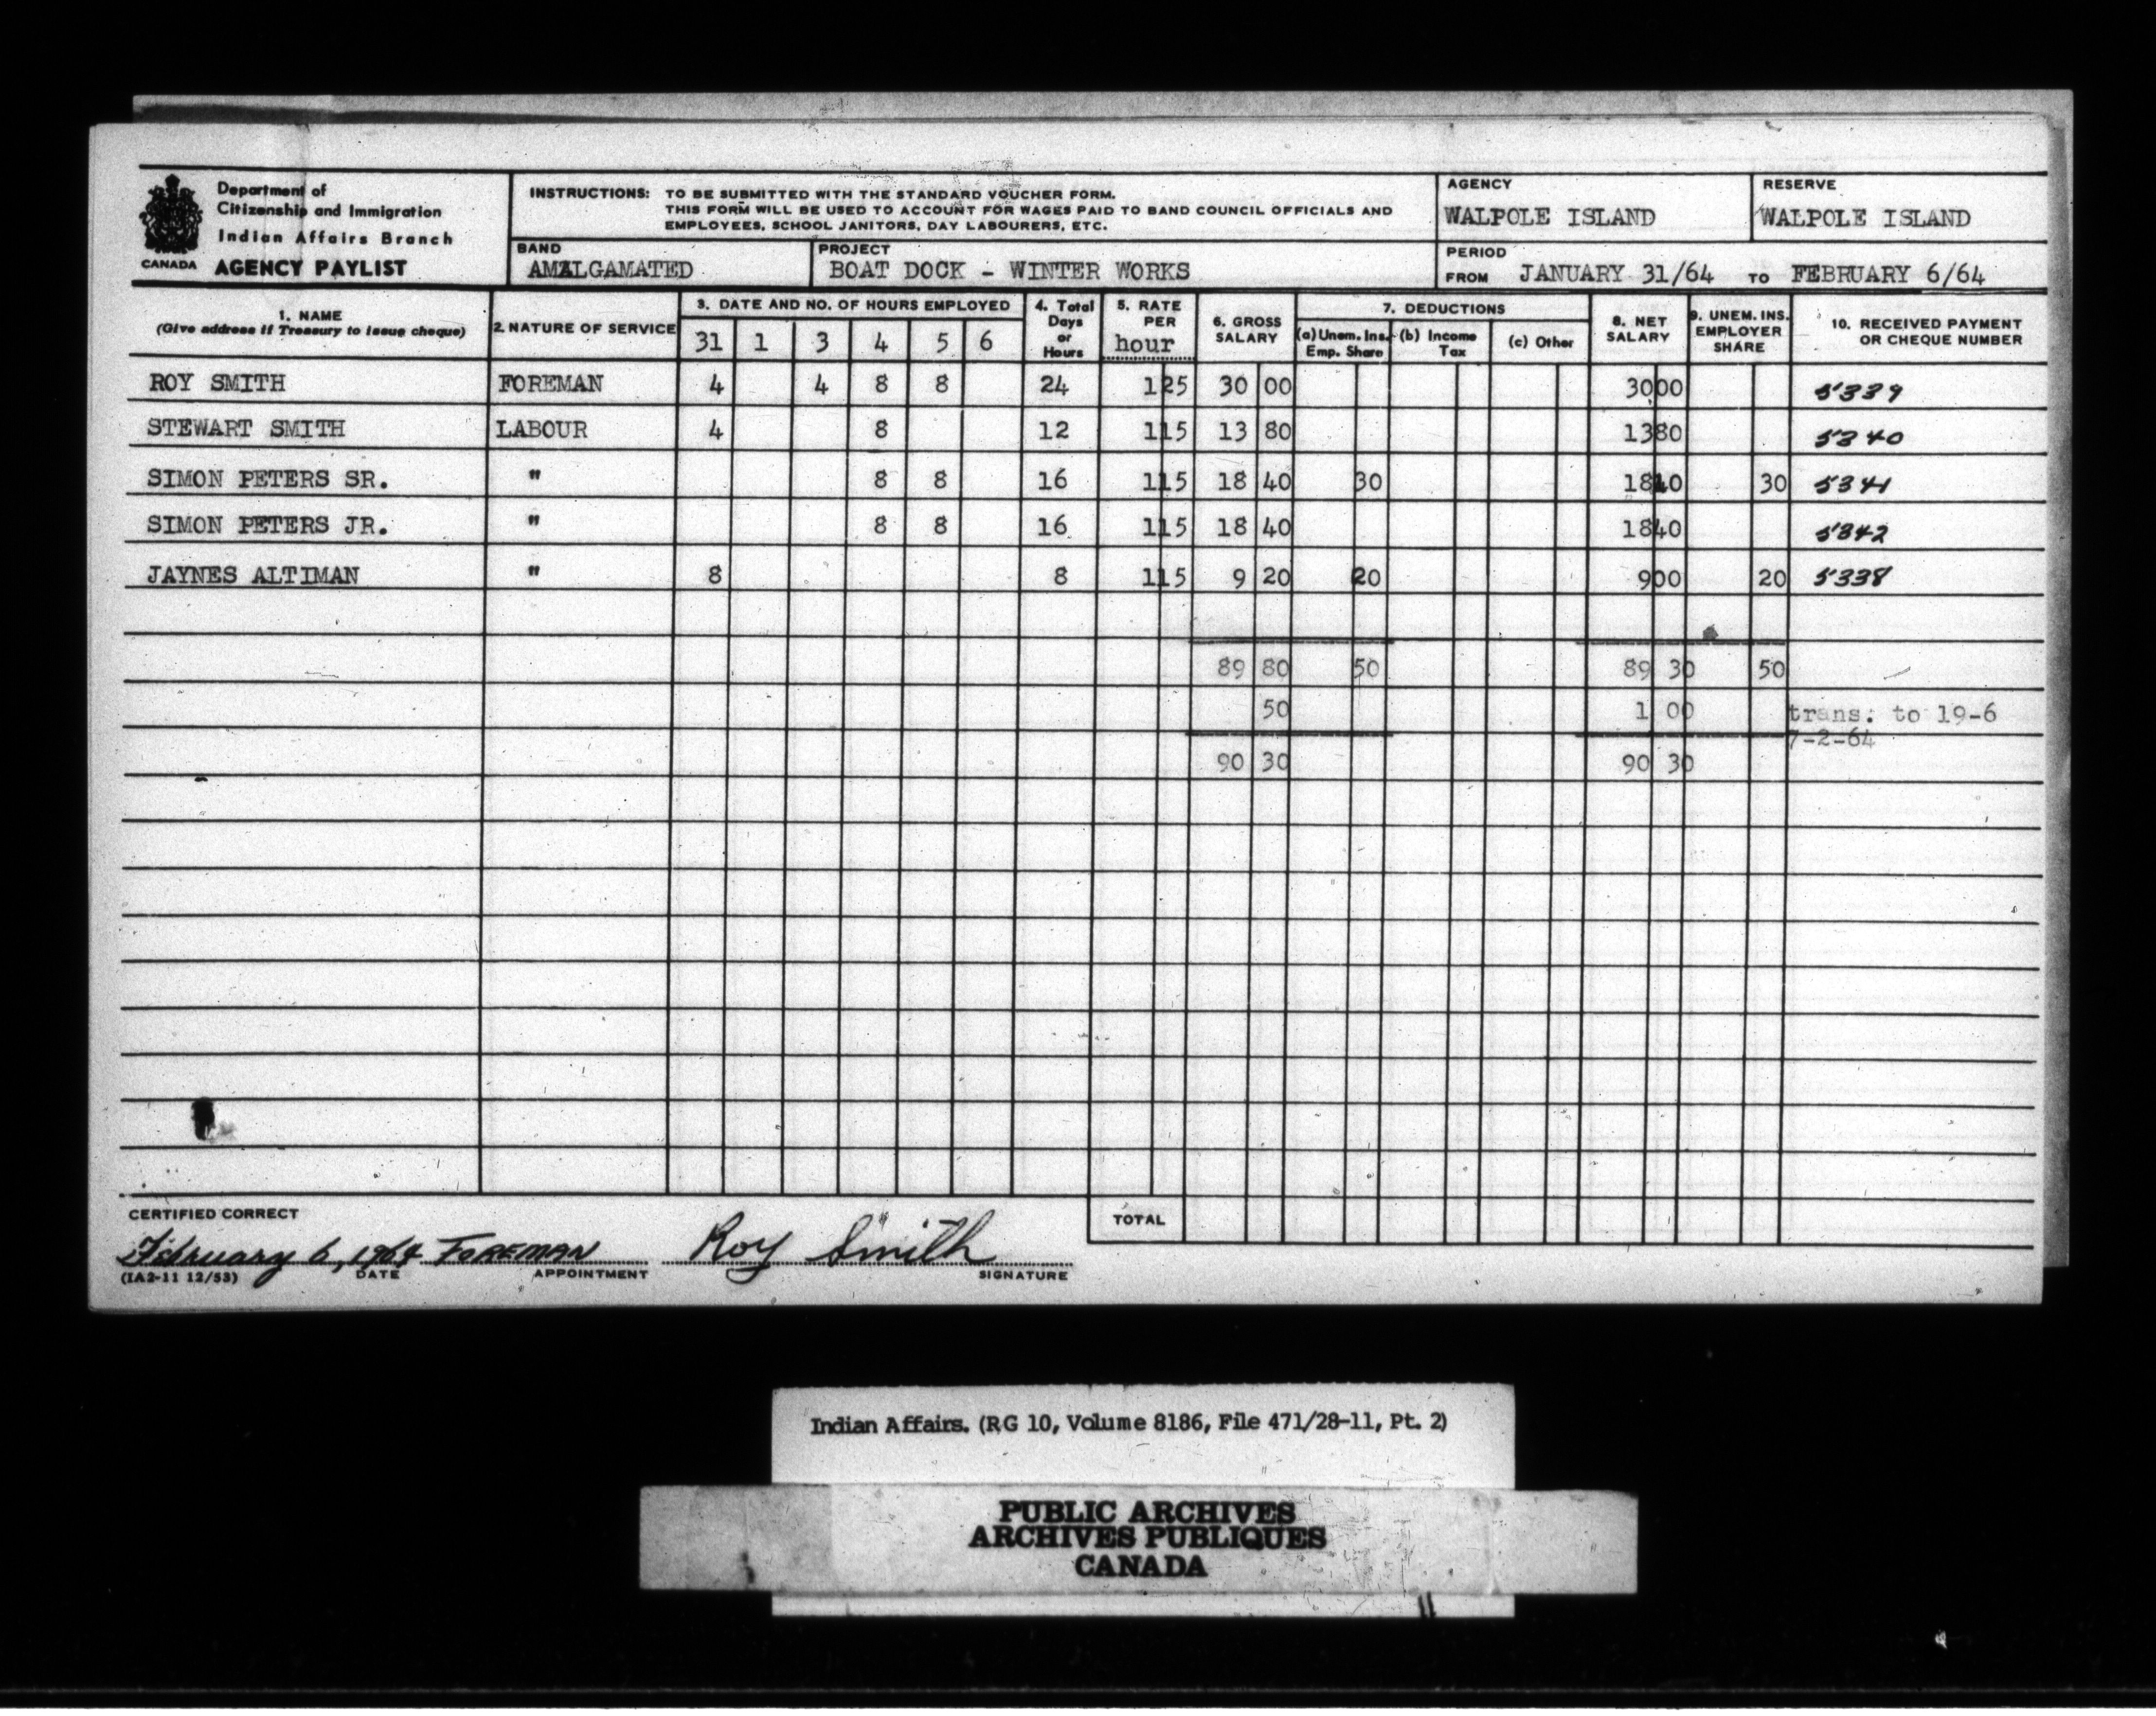 Department of
Citizenship and Immigration
Indian Affairs Branch
CANADA AGENCY PAYLIST
INSTRUCTIONS: TO BE SUBMITTED WITH THE STANDARD VOUCHER FORM.
THIS FORM WILL BE USED TO ACCOUNT FOR WAGES PAID TO BAND COUNCIL OFFICIALS AND
EMPLOYEES, SCHOOL JANITORS, DAY LABOURERS, ETC.
BAND
AMALGAMATED
PROJECT
BOAT DOCK - WINTER WORKS
AGENCY
WALPOLE ISLAND
RESERVE
WALPOLE ISLAND
PERIOD
FROM JANUARY 31/64 TO FEBRUARY 6/64
1. NAME
(Give address if Treasury to issue cheque)
2. NATURE OF SERVICE
3. DATE AND NO. OF HOURS EMPLOYED
31 1 3 4 5 6
4. Total
Days
or
Hours
5. RATE
PER
hour
6. GROSS
SALARY
7. DEDUCTIONS
(a) Unem. Ins.
Emp. Share
(b) Income
Tax
(c) Other
8. NET
SALARY
9. UNEM. INS.
EMPLOYER
SHARE
10. RECEIVED PAYMENT
OR CHEQUE NUMBER
ROY SMITH FOREMAN 4 4 8 8 24 125 30 00 3000 5339
STEWART SMITH LABOUR 4 8 12 115 13 80 1380 5340
SIMON PETERS SR. " 8 8 16 115 18 40 30 1810 30 5341
SIMON PETERS JR. " 8 8 16 115 18 40 1840 5342
JAYNES ALTIMAN " 8 8 115 9 20 20 900 20 5338
89 80 50 89 30 50
50 1 00 trans. to 19-6
7-2-64
90 30 90 30
TOTAL
CERTIFIED CORRECT
February 6, 1964 FOREMAN Roy Smith
(IA2-11 12/53) DATE APPOINTMENT SIGNATURE
Indian Affairs. (RG 10, Volume 8186, File 471/28-11, Pt. 2)
PUBLIC ARCHIVES
ARCHIVES PUBLIQUES
CANADA